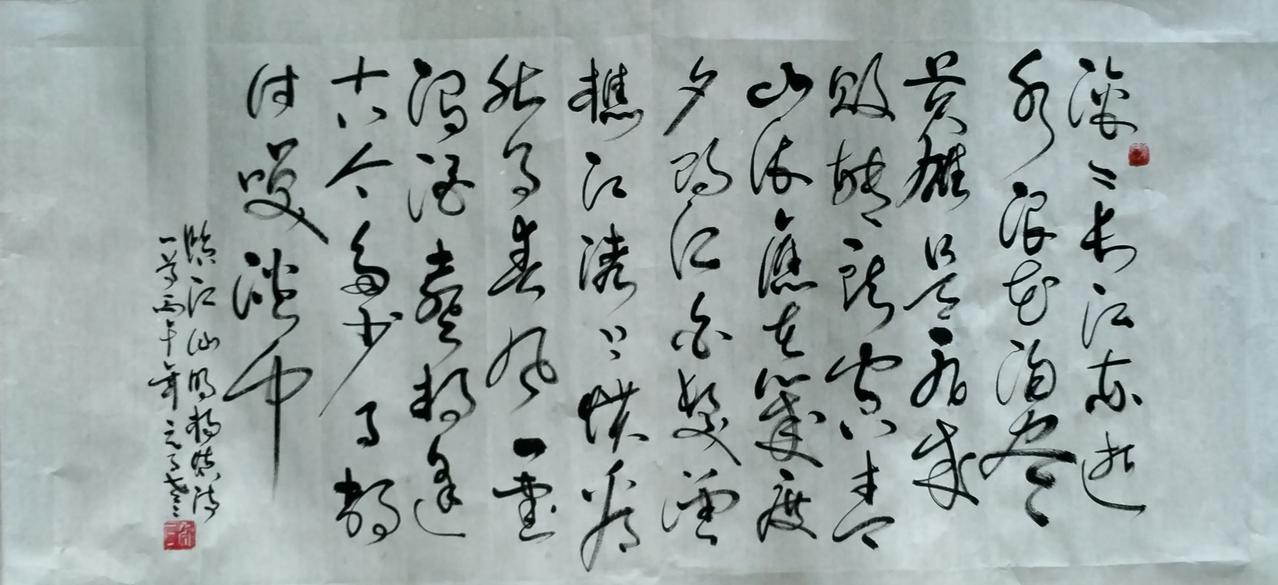 滚〻长江东逝
水浪花淘尽
英雄是非成
败转头空青
山依旧在几度
夕阳红白发渔
樵江渚上惯看
秋月春风一壶
浊酒喜相逢
古今多少事都
付笑谈中
临江仙明杨慎诗
一首丙午年元月